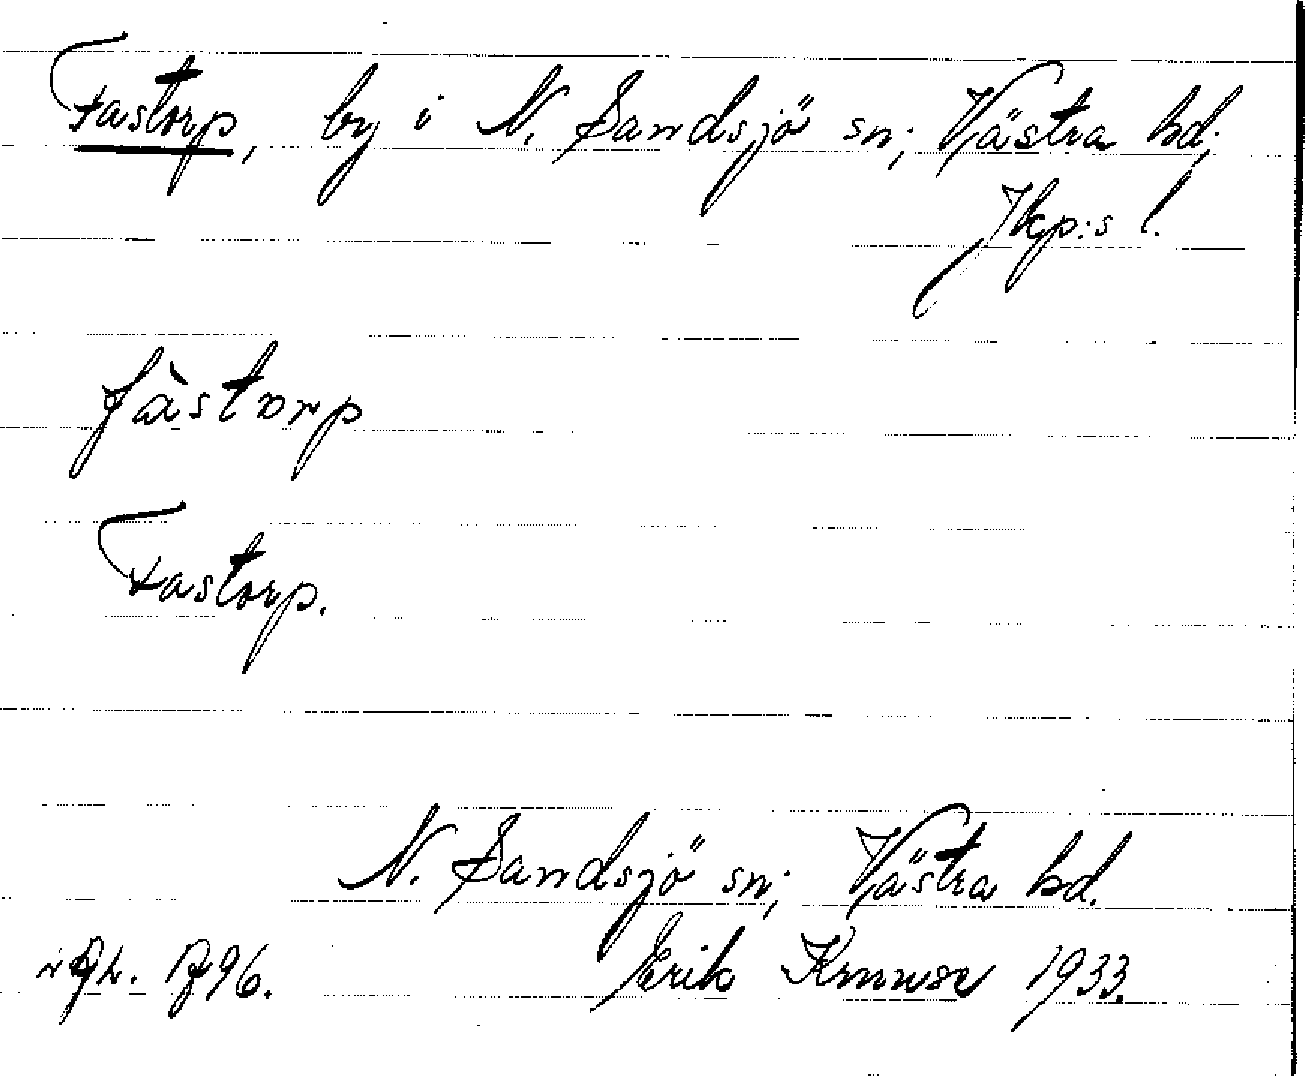 Fastorp, by i N. Sandsjö sn; Västra hd;
Jkp:s l.
fàstorp
Fastorp.
N. Sandsjö sn; Västra hd.
Erik Knuuse 1933.